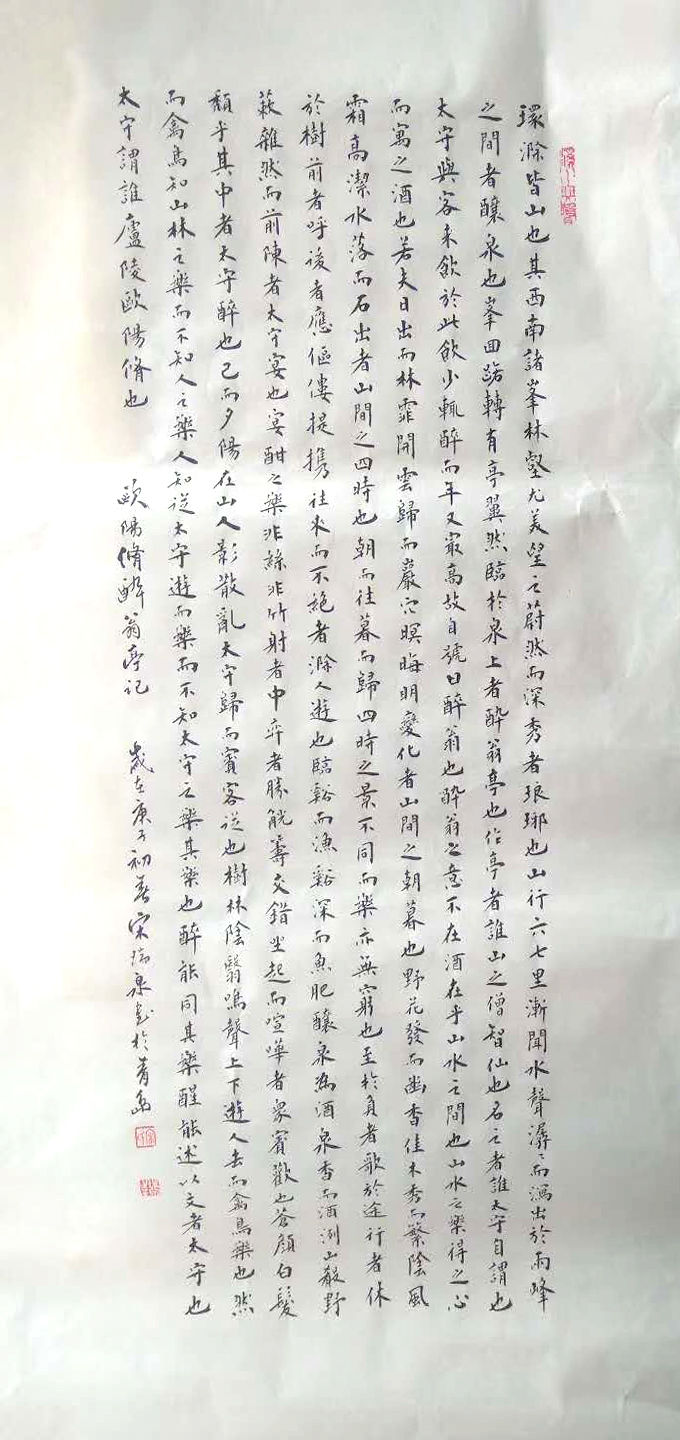 環滁皆山也其西南諸峯林壑尤美望之蔚然而深秀者琅琊也山行六七里漸聞水聲潺〻而瀉出於兩峰
之間者釀泉也峯回路轉有亭翼然臨於泉上者醉翁亭也作亭者誰山之僧智仙也名之者誰太守自謂也
太守與客来飲於此飲少輒醉而年又最高故自號曰醉翁也醉翁之意不在酒在乎山水之間也山水之樂得之心
而寓之酒也若夫日出而林霏開雲歸而巖穴暝晦明變化者山間之朝暮也野花發而幽香佳木秀而繁陰風
霜高潔水落而石出者山間之四時也朝而往暮而歸四時之景不同而樂亦無窮也至於負者歌於途行者休
於樹前者呼後者應傴僂提携往来而不絶者滁人遊也臨谿而漁谿深而魚肥釀泉為酒泉香而酒洌山殽野
蔌雜然而前陳者太守宴也宴酣之樂非絲非竹射者中弈者勝觥籌交錯坐起而喧嘩者衆賓歡也蒼顔白髮
頹乎其中者太守醉也已而夕陽在山人影散亂太守歸而賓客從也樹林陰翳鳴聲上下遊人去而禽鳥樂也然
而禽鳥知山林之樂而不知人之樂人知從太守遊而樂而不知太守之樂其樂也醉能同其樂醒能述以文者太守也
太守謂誰廬陵歐陽脩也
歐陽脩醉翁亭記
歲在庚子初春宋瑞泉書於青島